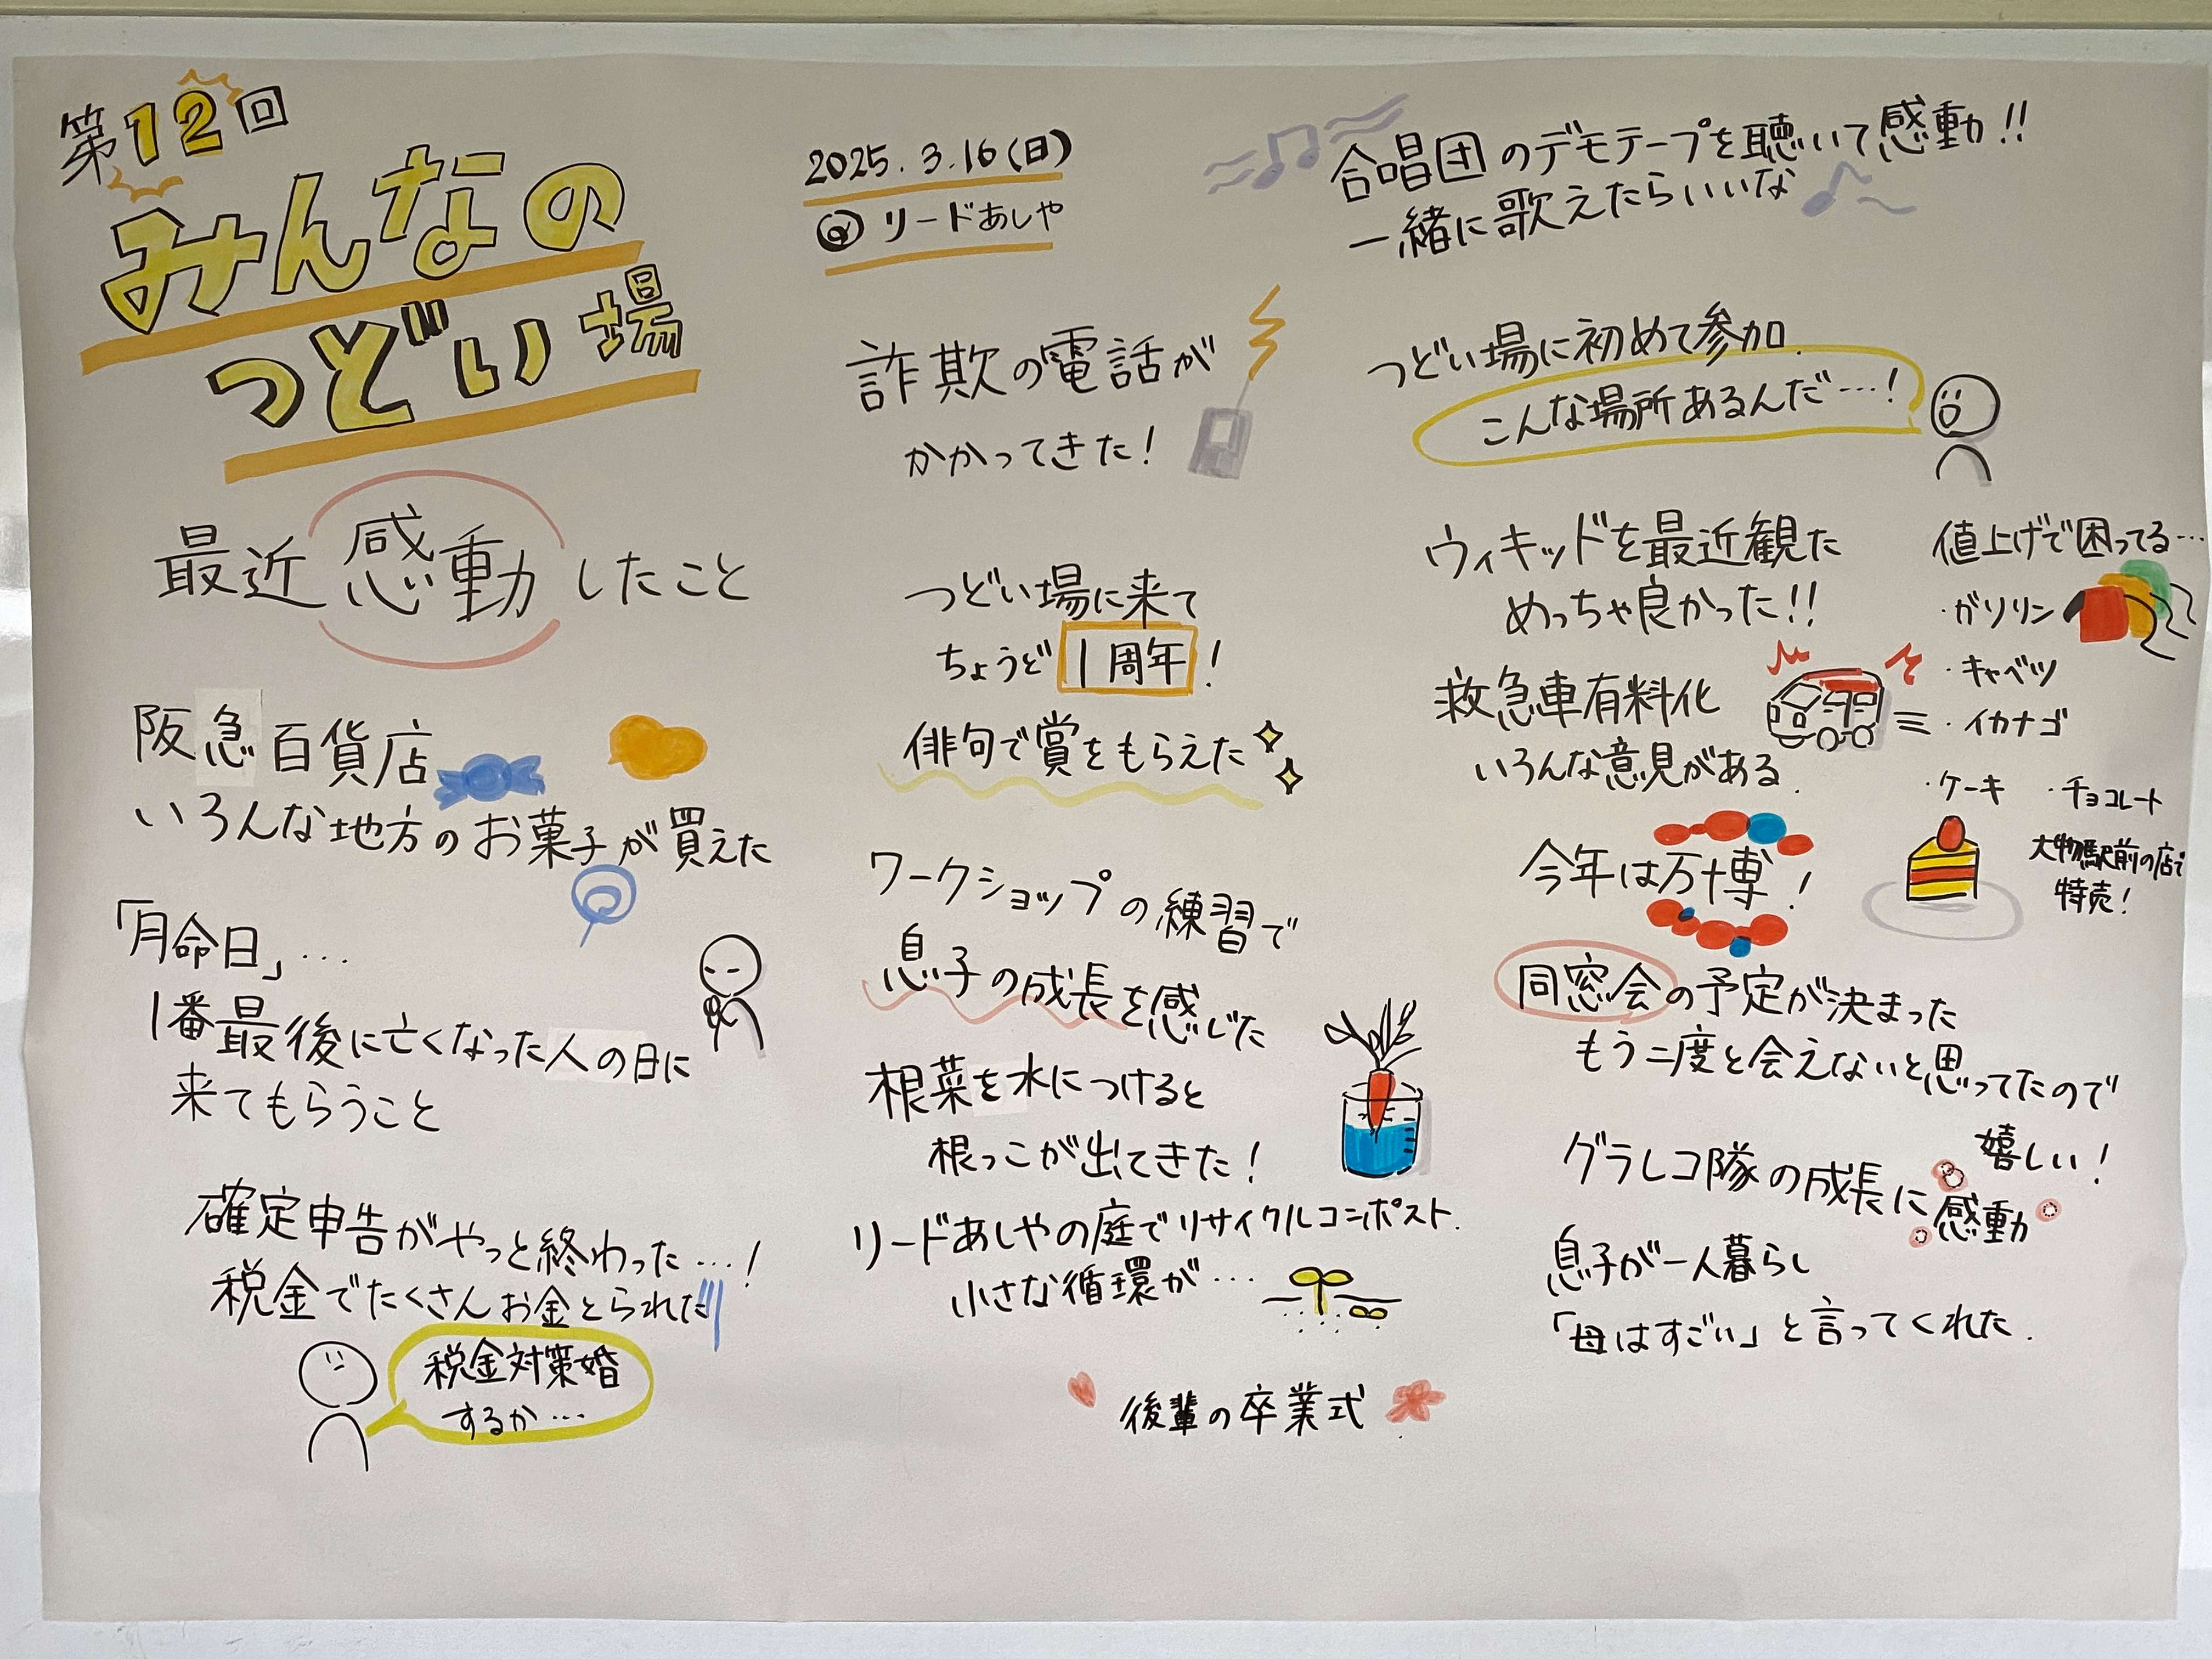 第12回
みんなの
つどい場
2025.3.16(日)
@リードあしや
最近感動したこと
阪急百貨店
いろんな地方のお菓子が買えた
「月命日」…
1番最後に亡くなった人の日に
来てもらうこと
確定申告がやっと終わった…!
税金でたくさんお金とられた
税金対策婚
するか…
詐欺の電話が
かかってきた!
つどい場に来て
ちょうど1周年!
俳句で賞をもらえた
ワークショップの練習で
息子の成長を感じた
根菜を水につけると
根っこが出てきた!
リードあしやの庭でリサイクルコンポスト.
小さな循環が…
後輩の卒業式
合唱団のデモテープを聴いて感動!!
一緒に歌えたらいいな
つどい場に初めて参加.
こんな場所あるんだ…!
ウィキッドを最近観た
めっちゃ良かった!!
救急車有料化
いろんな意見がある.
今年は万博!
値上げで困ってる…
・ガソリン
・キャベツ
・イカナゴ
・ケーキ ・チョコレート
大物駅前の店で
特売!
同窓会の予定が決まった
もう二度と会えないと思ってたので
嬉しい!
グラレコ隊の成長に感動
息子が一人暮らし
「母はすごい」と言ってくれた.